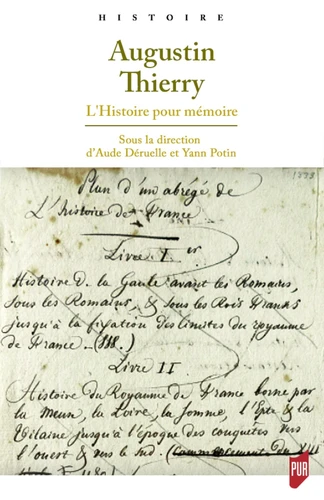 HISTOIRE
Augustin
Thierry
L'Histoire pour mémoire
Sous la direction
d'Aude Déruelle et Yann Potin
Plan d'un abrégé de
L'histoire de France
Livre I.er
Histoire d. la Gaule avant les Romains,
sous les Romains, & sous les Rois Franks
jusqu'à la fixation des limites du royaume
de France — (888.)
Livre II
Histoire du Royaume de France borné par
la Meuse, la Loire, la Somme, l'Epte & la
Vilaine jusqu'à l'époque des conquêtes vers
l'ouest & vers le sud.
PUR